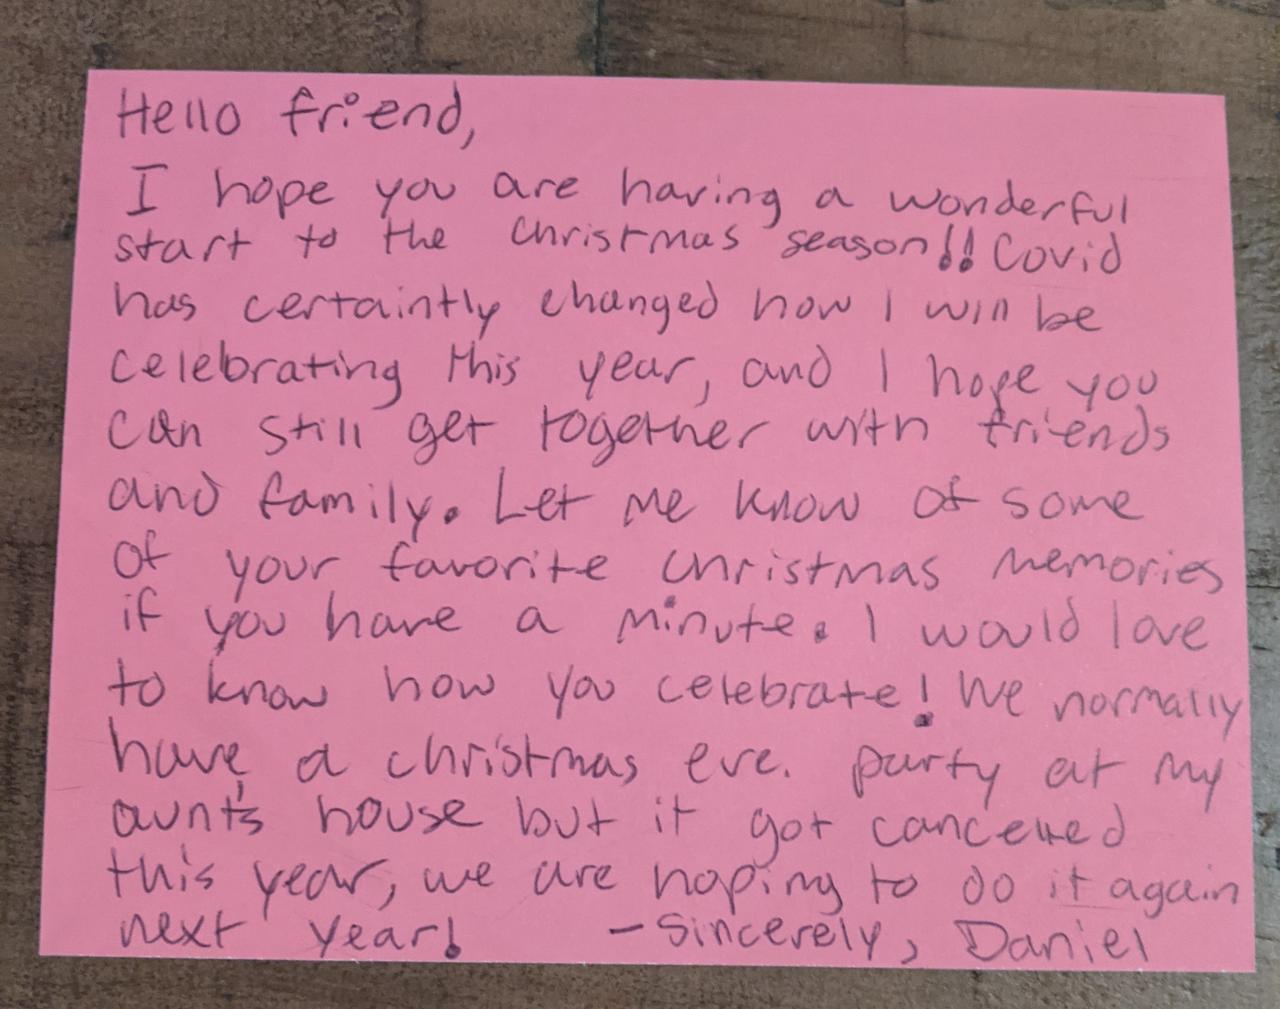 Hello friend,
I hope you are having a wonderful
start to the Christmas season!! Covid
has certaintly changed how I will be
celebrating this year, and I hope you
can still get together with friends
and family. Let me know of some
of your favorite christmas memories
if you have a minute. I would love
to know how you celebrate! We normally
have a christmas eve. party at my
aunt's house but it got cancelled
this year, we are hoping to do it again
next year! - Sincerely, Daniel